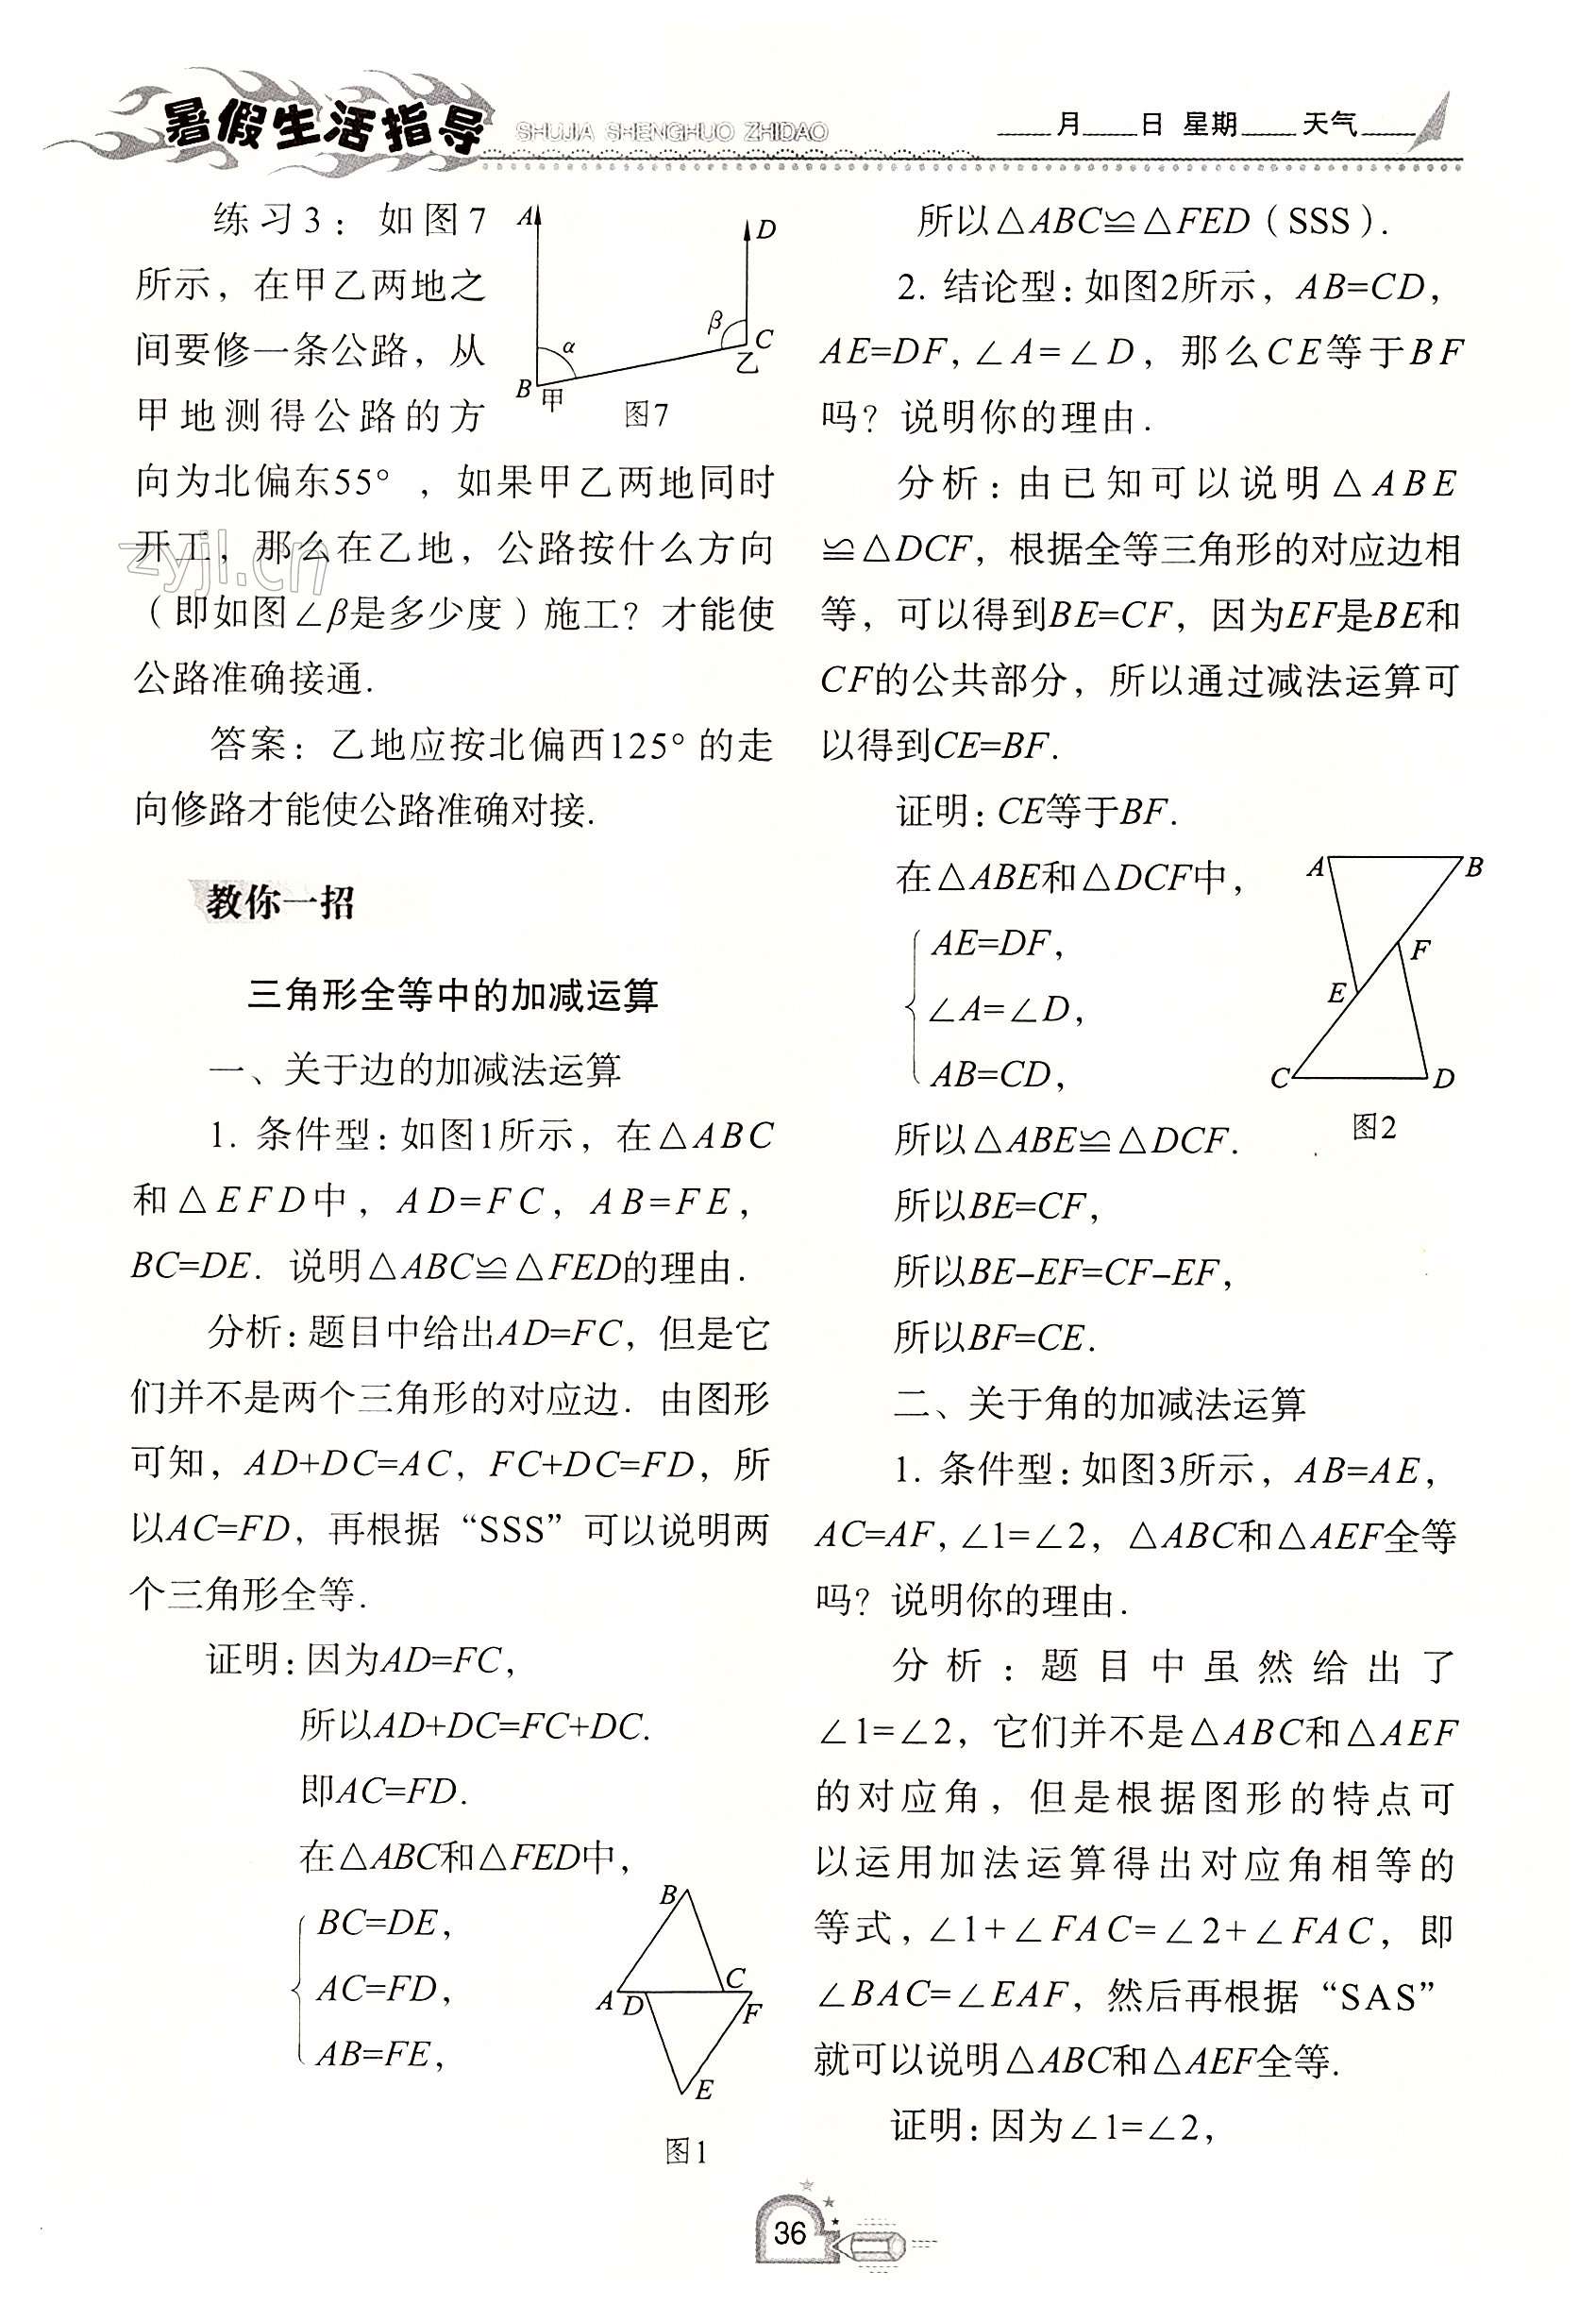 暑假生活指导 SHUJIA SHENGHUO ZHIDAO
____月____日 星期____天气____
练习3：如图7
所示，在甲乙两地之
间要修一条公路，从
甲地测得公路的方
A
D
β
α
C
乙
B
甲
图7
向为北偏东55°，如果甲乙两地同时
开工，那么在乙地，公路按什么方向
（即如图∠β是多少度）施工？才能使
公路准确接通.
答案：乙地应按北偏西125°的走
向修路才能使公路准确对接.
教你一招
三角形全等中的加减运算
一、关于边的加减法运算
1. 条件型：如图1所示，在△ABC
和△EFD中，AD=FC，AB=FE，
BC=DE. 说明△ABC≌△FED的理由.
分析：题目中给出AD=FC，但是它
们并不是两个三角形的对应边. 由图形
可知，AD+DC=AC，FC+DC=FD，所
以AC=FD，再根据“SSS”可以说明两
个三角形全等.
证明：因为AD=FC，
所以AD+DC=FC+DC.
即AC=FD.
在△ABC和△FED中，
BC=DE，
AC=FD，
AB=FE，
B
C
A
D
F
E
图1
所以△ABC≌△FED（SSS）.
2. 结论型：如图2所示，AB=CD，
AE=DF，∠A=∠D，那么CE等于BF
吗？说明你的理由.
分析：由已知可以说明△ABE
≌△DCF，根据全等三角形的对应边相
等，可以得到BE=CF，因为EF是BE和
CF的公共部分，所以通过减法运算可
以得到CE=BF.
证明：CE等于BF.
在△ABE和△DCF中，
AE=DF，
∠A=∠D，
AB=CD，
A
B
F
E
C
D
图2
所以△ABE≌△DCF.
所以BE=CF，
所以BE-EF=CF-EF，
所以BF=CE.
二、关于角的加减法运算
1. 条件型：如图3所示，AB=AE，
AC=AF，∠1=∠2，△ABC和△AEF全等
吗？说明你的理由.
分析：题目中虽然给出了
∠1=∠2，它们并不是△ABC和△AEF
的对应角，但是根据图形的特点可
以运用加法运算得出对应角相等的
等式，∠1+∠FAC=∠2+∠FAC，即
∠BAC=∠EAF，然后再根据“SAS”
就可以说明△ABC和△AEF全等.
证明：因为∠1=∠2，
36
zyjl.cn